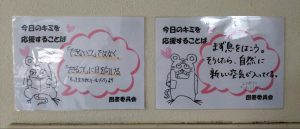 今日のキミを
応援することば
「できない」ではなく、
「できる」に目を向ける
図書委員会
今日のキミを
応援することば
まず息をはこう。
そうしたら、自然に
新しい空気が入ってくる。
図書委員会